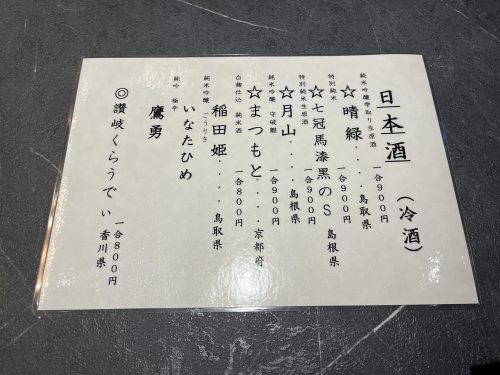 日本酒 (冷酒)
純米吟醸雫取り生原酒 一合900円
☆晴緑....鳥取県
特別純米 一合900円
☆七冠馬漆黒のS 島根県
特別純米生原酒 一合900円
☆月山....島根県
純米吟醸 守破離 一合900円
☆まつもと....京都府
白麹仕込 純米酒 一合800円
稲田姫....鳥取県
純米吟醸 ごうりき
いなたひめ
純吟 極辛
鷹勇
一合800円
◎讃岐くらうでぃ 香川県